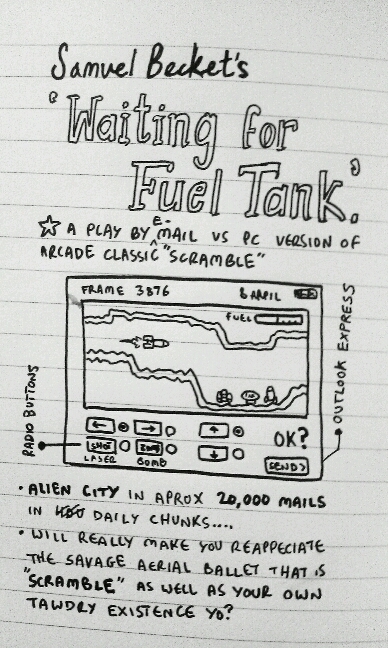 Samuel Becket's
'Waiting for
Fuel Tank.'
☆ A PLAY BY E-MAIL VS PC VERSION OF
ARCADE CLASSIC "SCRAMBLE"
FRAME 3876 8 APRIL
FUEL
RADIO BUTTONS
OUTLOOK EXPRESS
← → ↑ OK?
SHOT BOMB ↓ SEND>
LASER BOMB
• ALIEN CITY IN APROX 20,000 MAILS
IN DAILY CHUNKS....
• WILL REALLY MAKE YOU REAPPECIATE
THE SAVAGE AERIAL BALLET THAT IS
"SCRAMBLE" AS WELL AS YOUR OWN
TAWDRY EXISTENCE YO?